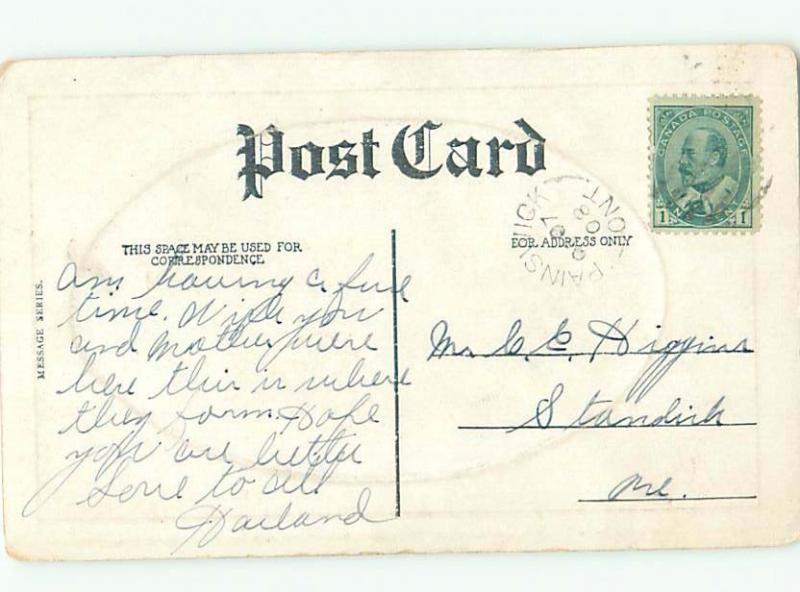 Post Card
CANADA POSTAGE
1 ONE CENT 1
PAINSWICK
ONT
THIS SPACE MAY BE USED FOR
CORRESPONDENCE
FOR ADDRESS ONLY
MESSAGE SERIES.
Am having a fine
time. Wish you
and Mother were
here this is where
they farm. Hope
you are better
Love to all
Harland
Mr. C. E. Higgins
Standish
Me.